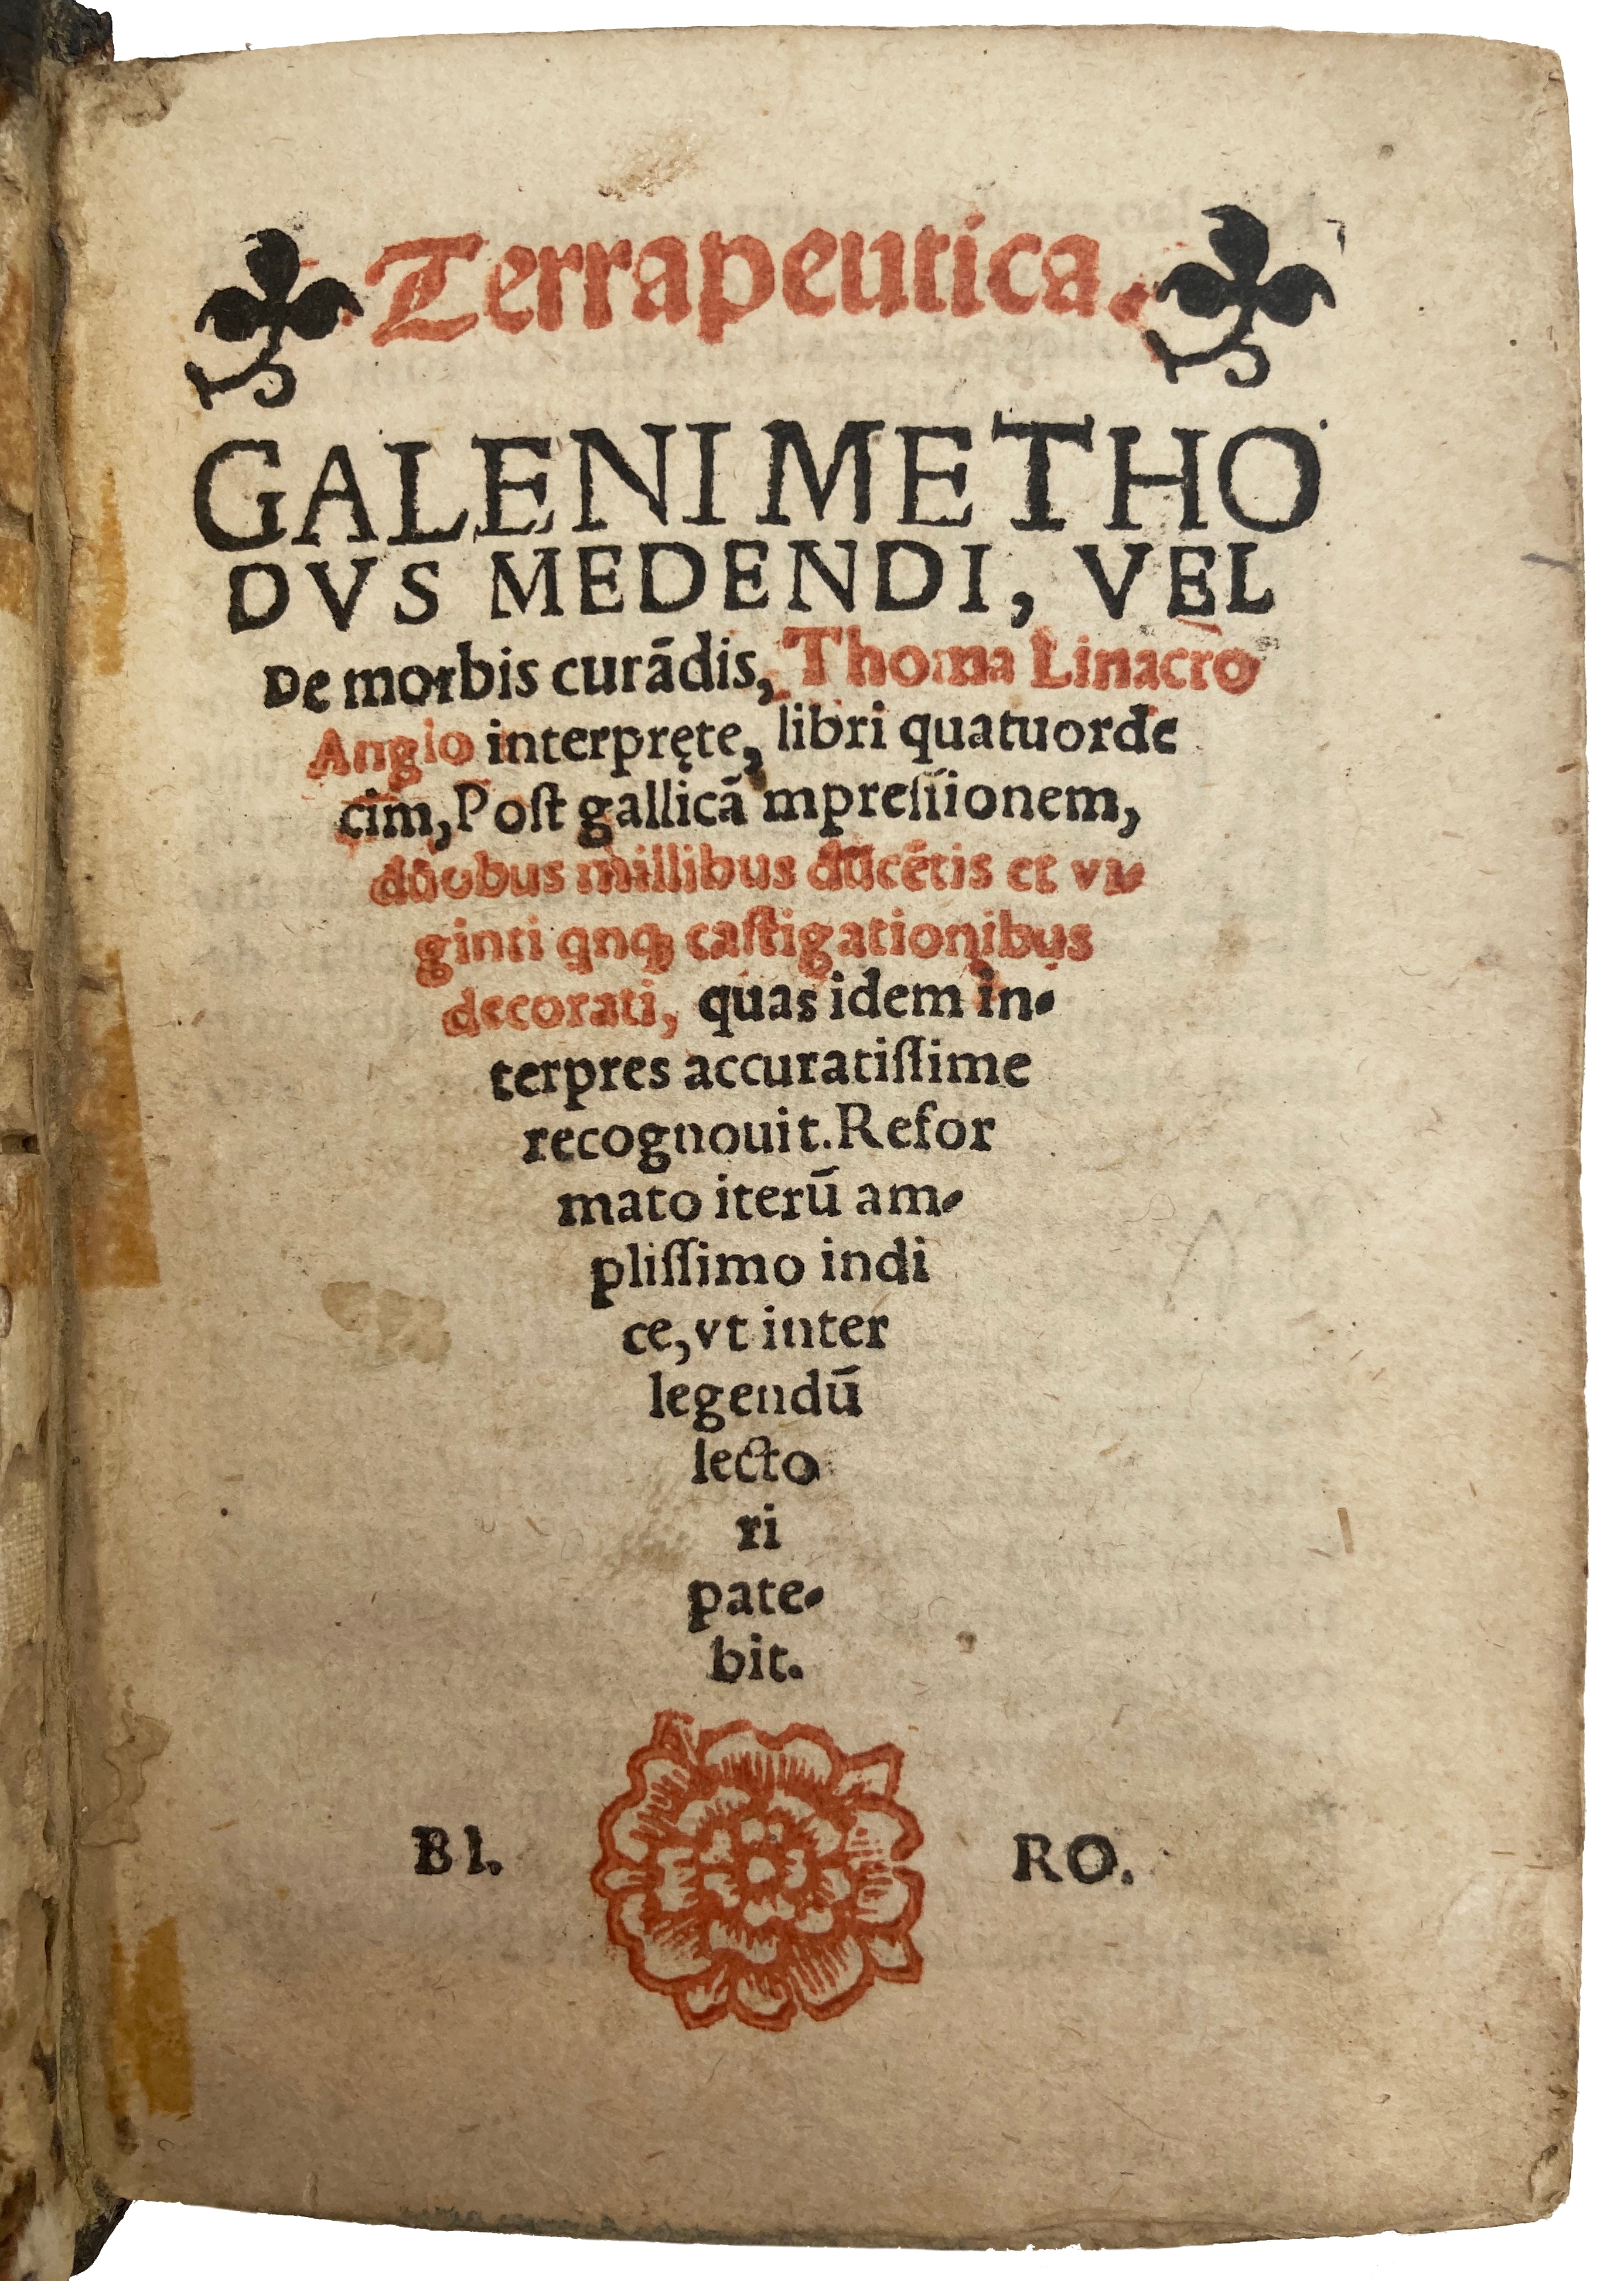 Terrapeutica.
GALENI METHO
DVS MEDENDI, VEL
De morbis curādis, Thoma Linacro
Anglo interpręte, libri quatuorde
cim, Poſt gallicā mpreſſionem,
duobus millibus ducētis et vi-
ginti qnqꝫ caſtigationibus
decorati, quas idem in-
terpres accuratiſſime
recognouit. Refor
mato iterū am-
pliſſimo indi
ce, vt inter
legendū
lecto
ri
pate-
bit.
BI. RO.